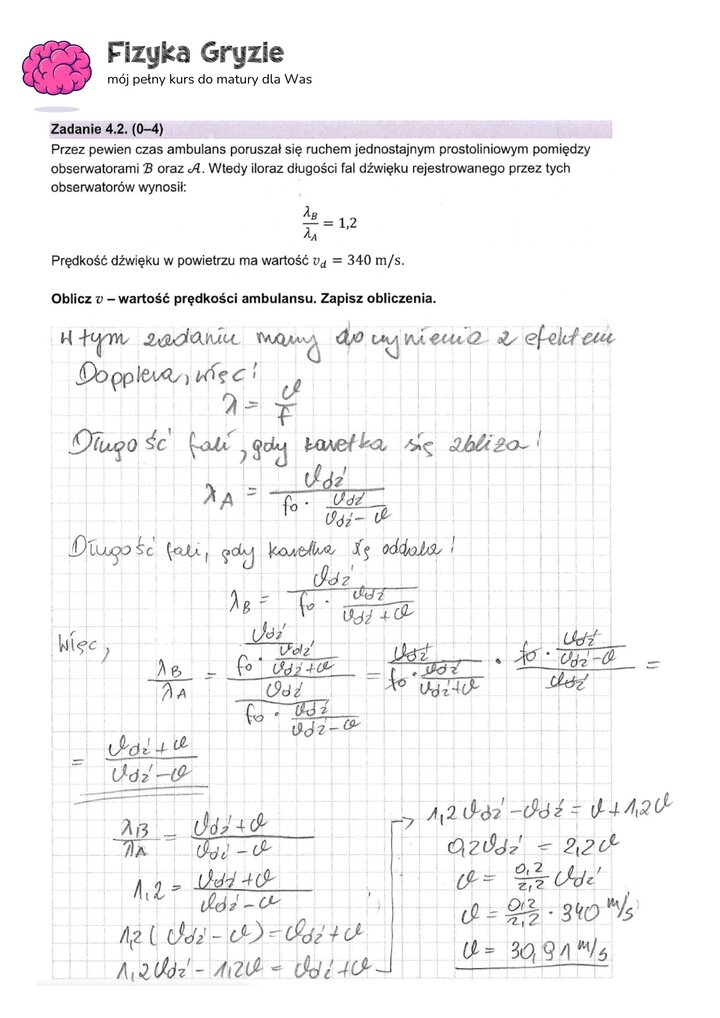 Fizyka Gryzie
mój pełny kurs do matury dla Was
Zadanie 4.2. (0–4)
Przez pewien czas ambulans poruszał się ruchem jednostajnym prostoliniowym pomiędzy
obserwatorami ℬ oraz 𝒜. Wtedy iloraz długości fal dźwięku rejestrowanego przez tych
obserwatorów wynosił:
λ_B / λ_A = 1,2
Prędkość dźwięku w powietrzu ma wartość v_d = 340 m/s.
Oblicz v – wartość prędkości ambulansu. Zapisz obliczenia.
W tym zadaniu mamy do czynienia z efektem
Dopplera, więc:
λ = v / f
Długość fali, gdy karetka się zbliża:
λ_A = v_dź / (f₀ · v_dź / (v_dź - v))
Długość fali, gdy karetka się oddala:
λ_B = v_dź / (f₀ · v_dź / (v_dź + v))
Więc,
λ_B / λ_A = (v_dź / (f₀ · v_dź / (v_dź + v))) / (v_dź / (f₀ · v_dź / (v_dź - v))) = v_dź / (f₀ · v_dź / (v_dź + v)) · (f₀ · v_dź / (v_dź - v)) / v_dź =
= (v_dź + v) / (v_dź - v)
λ_B / λ_A = (v_dź + v) / (v_dź - v)
1,2 = (v_dź + v) / (v_dź - v)
1,2 (v_dź - v) = v_dź + v
1,2 v_dź - 1,2v = v_dź + v
→ 1,2 v_dź - v_dź = v + 1,2v
0,2 v_dź = 2,2v
v = 0,2 / 2,2 v_dź
v = 0,2 / 2,2 · 340 m/s
v = 30,91 m/s